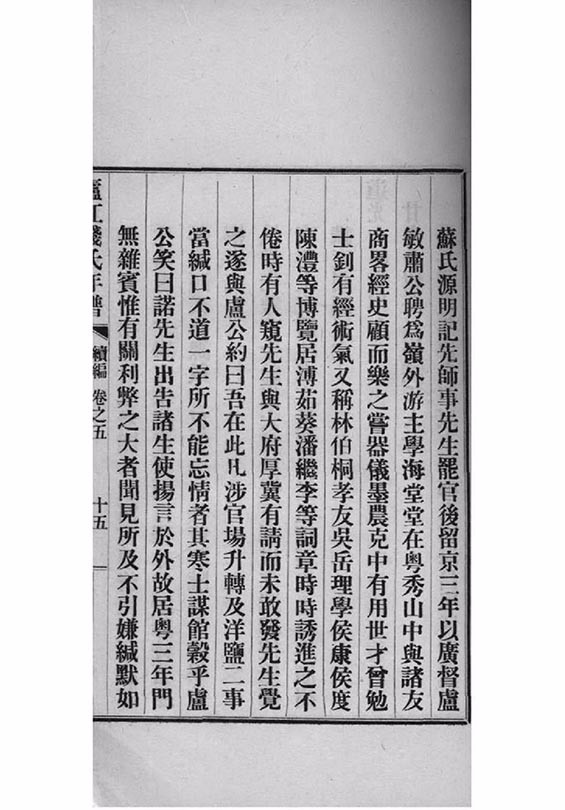 蘇氏源明記先師事先生罷官後留京三年以廣督盧
敏肅公聘爲嶺外游主學海堂堂在粤秀山中與諸友
商畧經史顧而樂之嘗器儀墨農克中有用世才曾勉
士釗有經術氣又稱林伯桐孝友吳岳理學侯康侯度
陳澧等博覽居溥茹葵潘繼李等詞章時時誘進之不
倦時有人窺先生與大府厚冀有請而未敢發先生覺
之遂與盧公約曰吾在此凡涉官場升轉及洋鹽二事
當緘口不道一字所不能忘情者其寒士謀館穀乎盧
公笑曰諾先生出告諸生使揚言於外故居粤三年門
無雜賓惟有關利弊之大者聞見所及不引嫌緘默如
廬江錢氏年譜 續編 卷之五 十五